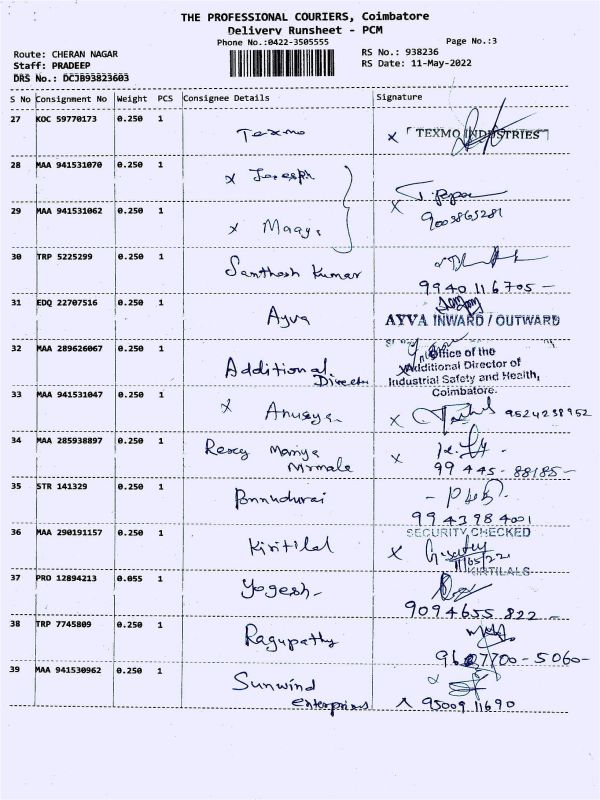 THE PROFESSIONAL COURIERS, Coimbatore
Delivery Runsheet - PCM
Phone No.:0422-3505555
Page No.:3
Route: CHERAN NAGAR
RS No.: 938236
Staff: PRADEEP
RS Date: 11-May-2022
DRS No.: DCJB93823603
S No Consignment No Weight PCS Consignee Details Signature
27 KOC 59770173 0.250 1 Texmo x TEXMO INDUSTRIES
28 MAA 941531070 0.250 1 x Joseph
29 MAA 941531062 0.250 1 x x
9003865281
30 TRP 5225299 0.250 1 Santhosh Kumar
9940116705 -
31 EDQ 22707516 0.250 1 Ayva AYVA INWARD / OUTWARD
32 MAA 289626067 0.250 1 Additional Director
Office of the
Additional Director of
Industrial Safety and Health,
Coimbatore.
33 MAA 941531047 0.250 1 x Anusya x 9524238952
34 MAA 285938897 0.250 1 x
99 445- 88185 -
35 STR 141329 0.250 1 Ponnudurai
9943984001
36 MAA 290191157 0.250 1 Kiritilal x
SECURITY CHECKED
11/05/22
KIRTILALS
37 PRO 12894213 0.055 1 Yogesh-
9094655 822 -
38 TRP 7745809 0.250 1 Ragupathy
39 MAA 941530962 0.250 1 Sunwind
enterprises 9500911690